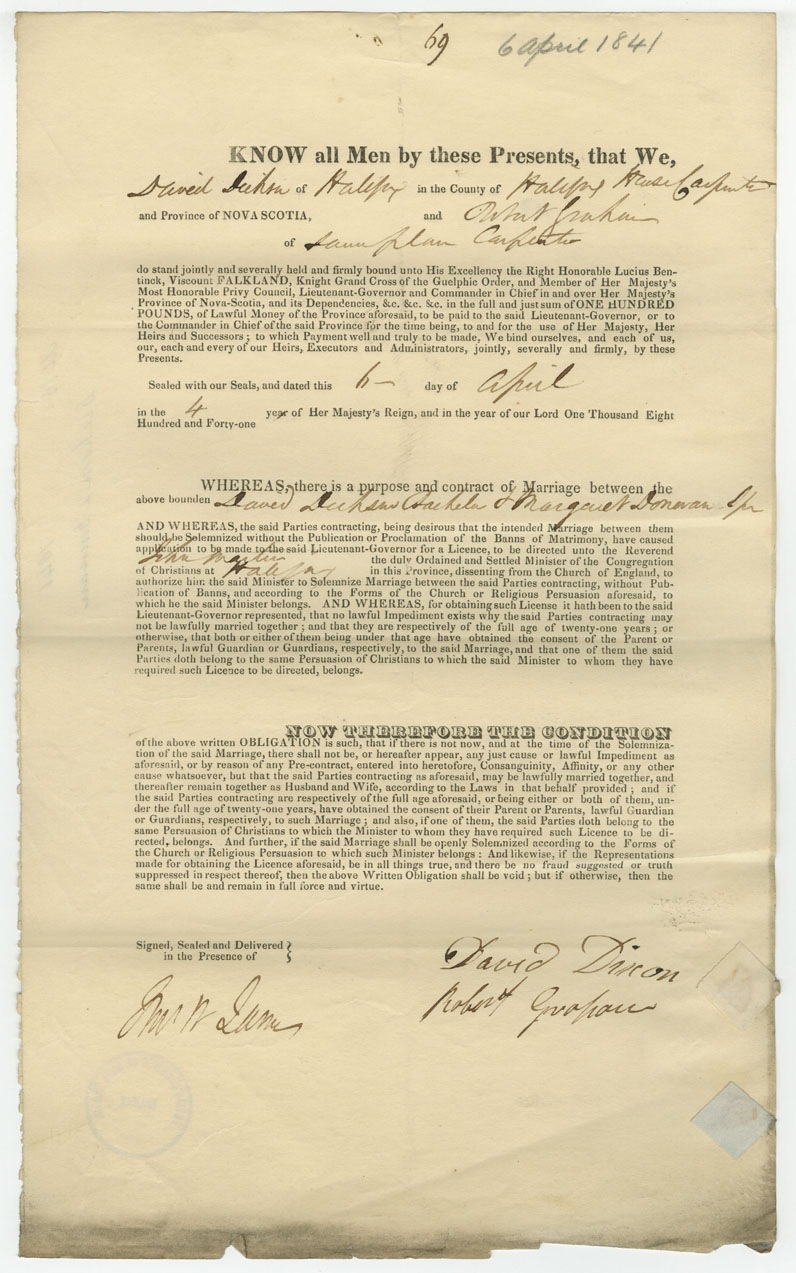 69 6 April 1841
KNOW all Men by these Presents, that We,
David Dickson of Halifax in the County of Halifax House Carpenter
and Province of NOVA SCOTIA, and Robert Graham
of same place Carpenter
do stand jointly and severally held and firmly bound unto His Excellency the Right Honorable Lucius Ben-
tinck, Viscount FALKLAND, Knight Grand Cross of the Guelphic Order, and Member of Her Majesty's
Most Honorable Privy Council, Lieutenant-Governor and Commander in Chief in and over Her Majesty's
Province of Nova-Scotia, and its Dependencies, &c. &c. &c. in the full and just sum of ONE HUNDRED
POUNDS, of Lawful Money of the Province aforesaid, to be paid to the said Lieutenant-Governor, or to
the Commander in Chief of the said Province for the time being, to and for the use of Her Majesty, Her
Heirs and Successors ; to which Payment well and truly to be made, We bind ourselves, and each of us,
our, each and every of our Heirs, Executors and Administrators, jointly, severally and firmly, by these
Presents.
Sealed with our Seals, and dated this 6 day of April
in the 4 year of Her Majesty's Reign, and in the year of our Lord One Thousand Eight
Hundred and Forty-one
WHEREAS, there is a purpose and contract of Marriage between the
above bounden David Dickson Bachelor & Margaret Donovan Spr
AND WHEREAS, the said Parties contracting, being desirous that the intended Marriage between them
should be Solemnized without the Publication or Proclamation of the Banns of Matrimony, have caused
application to be made to the said Lieutenant-Governor for a Licence, to be directed unto the Reverend
John Martin the duly Ordained and Settled Minister of the Congregation
of Christians at Halifax in this Province, dissenting from the Church of England, to
authorize him the said Minister to Solemnize Marriage between the said Parties contracting, without Pub-
lication of Banns, and according to the Forms of the Church or Religious Persuasion aforesaid, to
which he the said Minister belongs. AND WHEREAS, for obtaining such License it hath been to the said
Lieutenant-Governor represented, that no lawful Impediment exists why the said Parties contracting may
not be lawfully married together ; and that they are respectively of the full age of twenty-one years ; or
otherwise, that both or either of them being under that age have obtained the consent of the Parent or
Parents, lawful Guardian or Guardians, respectively, to the said Marriage, and that one of them the said
Parties doth belong to the same Persuasion of Christians to which the said Minister to whom they have
required such Licence to be directed, belongs.
NOW THEREFORE THE CONDITION
of the above written OBLIGATION is such, that if there is not now, and at the time of the Solemniza-
tion of the said Marriage, there shall not be, or hereafter appear, any just cause or lawful Impediment as
aforesaid, or by reason of any Pre-contract, entered into heretofore, Consanguinity, Affinity, or any other
cause whatsoever, but that the said Parties contracting as aforesaid, may be lawfully married together, and
thereafter remain together as Husband and Wife, according to the Laws in that behalf provided ; and if
the said Parties contracting are respectively of the full age aforesaid, or being either or both of them, un-
der the full age of twenty-one years, have obtained the consent of their Parent or Parents, lawful Guardian
or Guardians, respectively, to such Marriage ; and also, if one of them, the said Parties doth belong to the
same Persuasion of Christians to which the Minister to whom they have required such Licence to be di-
rected, belongs. And further, if the said Marriage shall be openly Solemnized according to the Forms of
the Church or Religious Persuasion to which such Minister belongs : And likewise, if the Representations
made for obtaining the Licence aforesaid, be in all things true, and there be no fraud suggested or truth
suppressed in respect thereof, then the above Written Obligation shall be void ; but if otherwise, then the
same shall be and remain in full force and virtue.
Signed, Sealed and Delivered
in the Presence of
David Dixon
Robert Graham